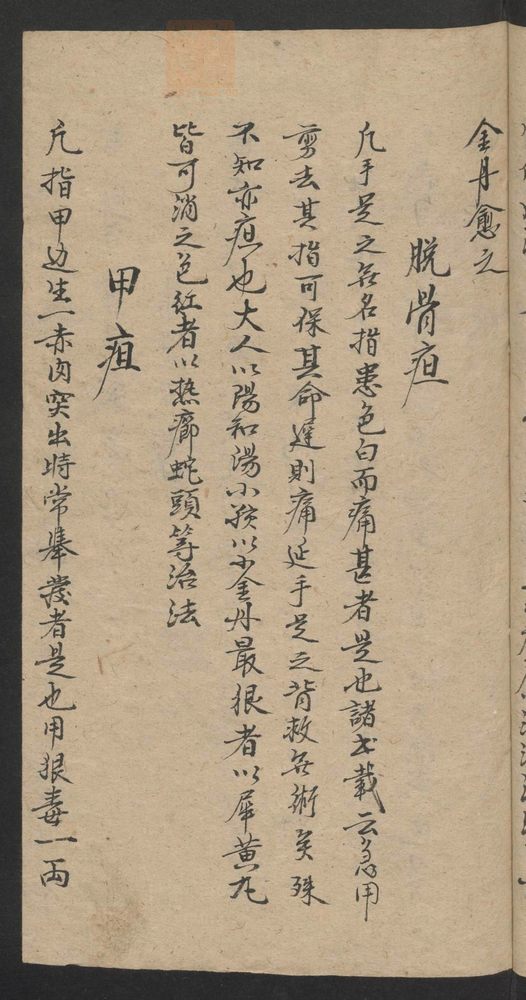 金丹愈之
脱骨疽
凡手足之无名指患色白而痛甚者是也諸书載云急用
剪去其指可保其命遲則痛延手足之背救无術矣殊
不知亦疽也大人以陽和湯小孩以小金丹最狠者以犀黄丸
皆可消之色紅者以熱癤蛇頭等治法
甲疽
凡指甲边生一赤肉突出時常舉發者是也用狠毒一両